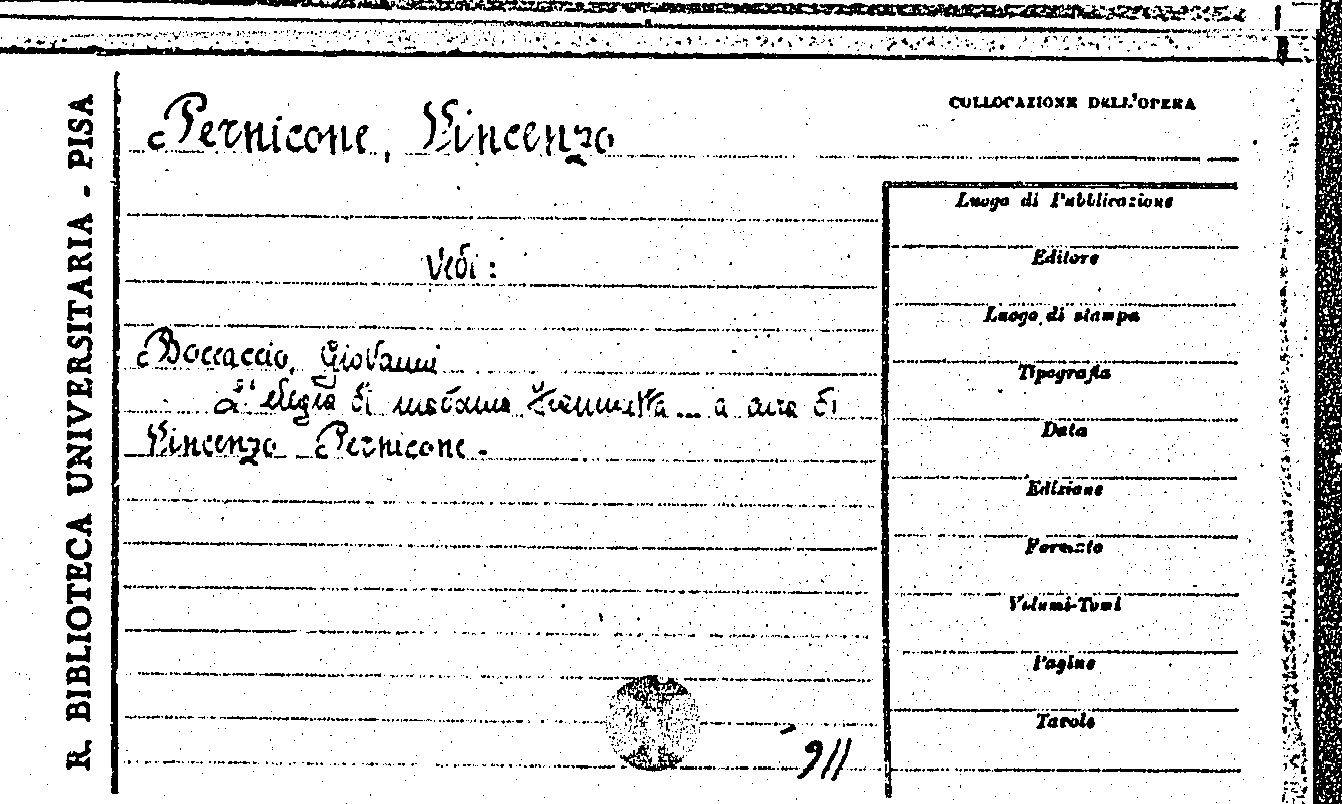 R. BIBLIOTECA UNIVERSITARIA - PISA
Pernicone, Vincenzo
COLLOCAZIONE DELL'OPERA
Vedi :
Boccaccio, Giovanni
L'elegia di madama Fiammetta... a cura di
Vincenzo Pernicone.
Luogo di Pubblicazione
Editore
Luogo di stampa
Tipografia
Data
Edizione
Formato
Volumi-Tomi
Pagine
Tavole
911